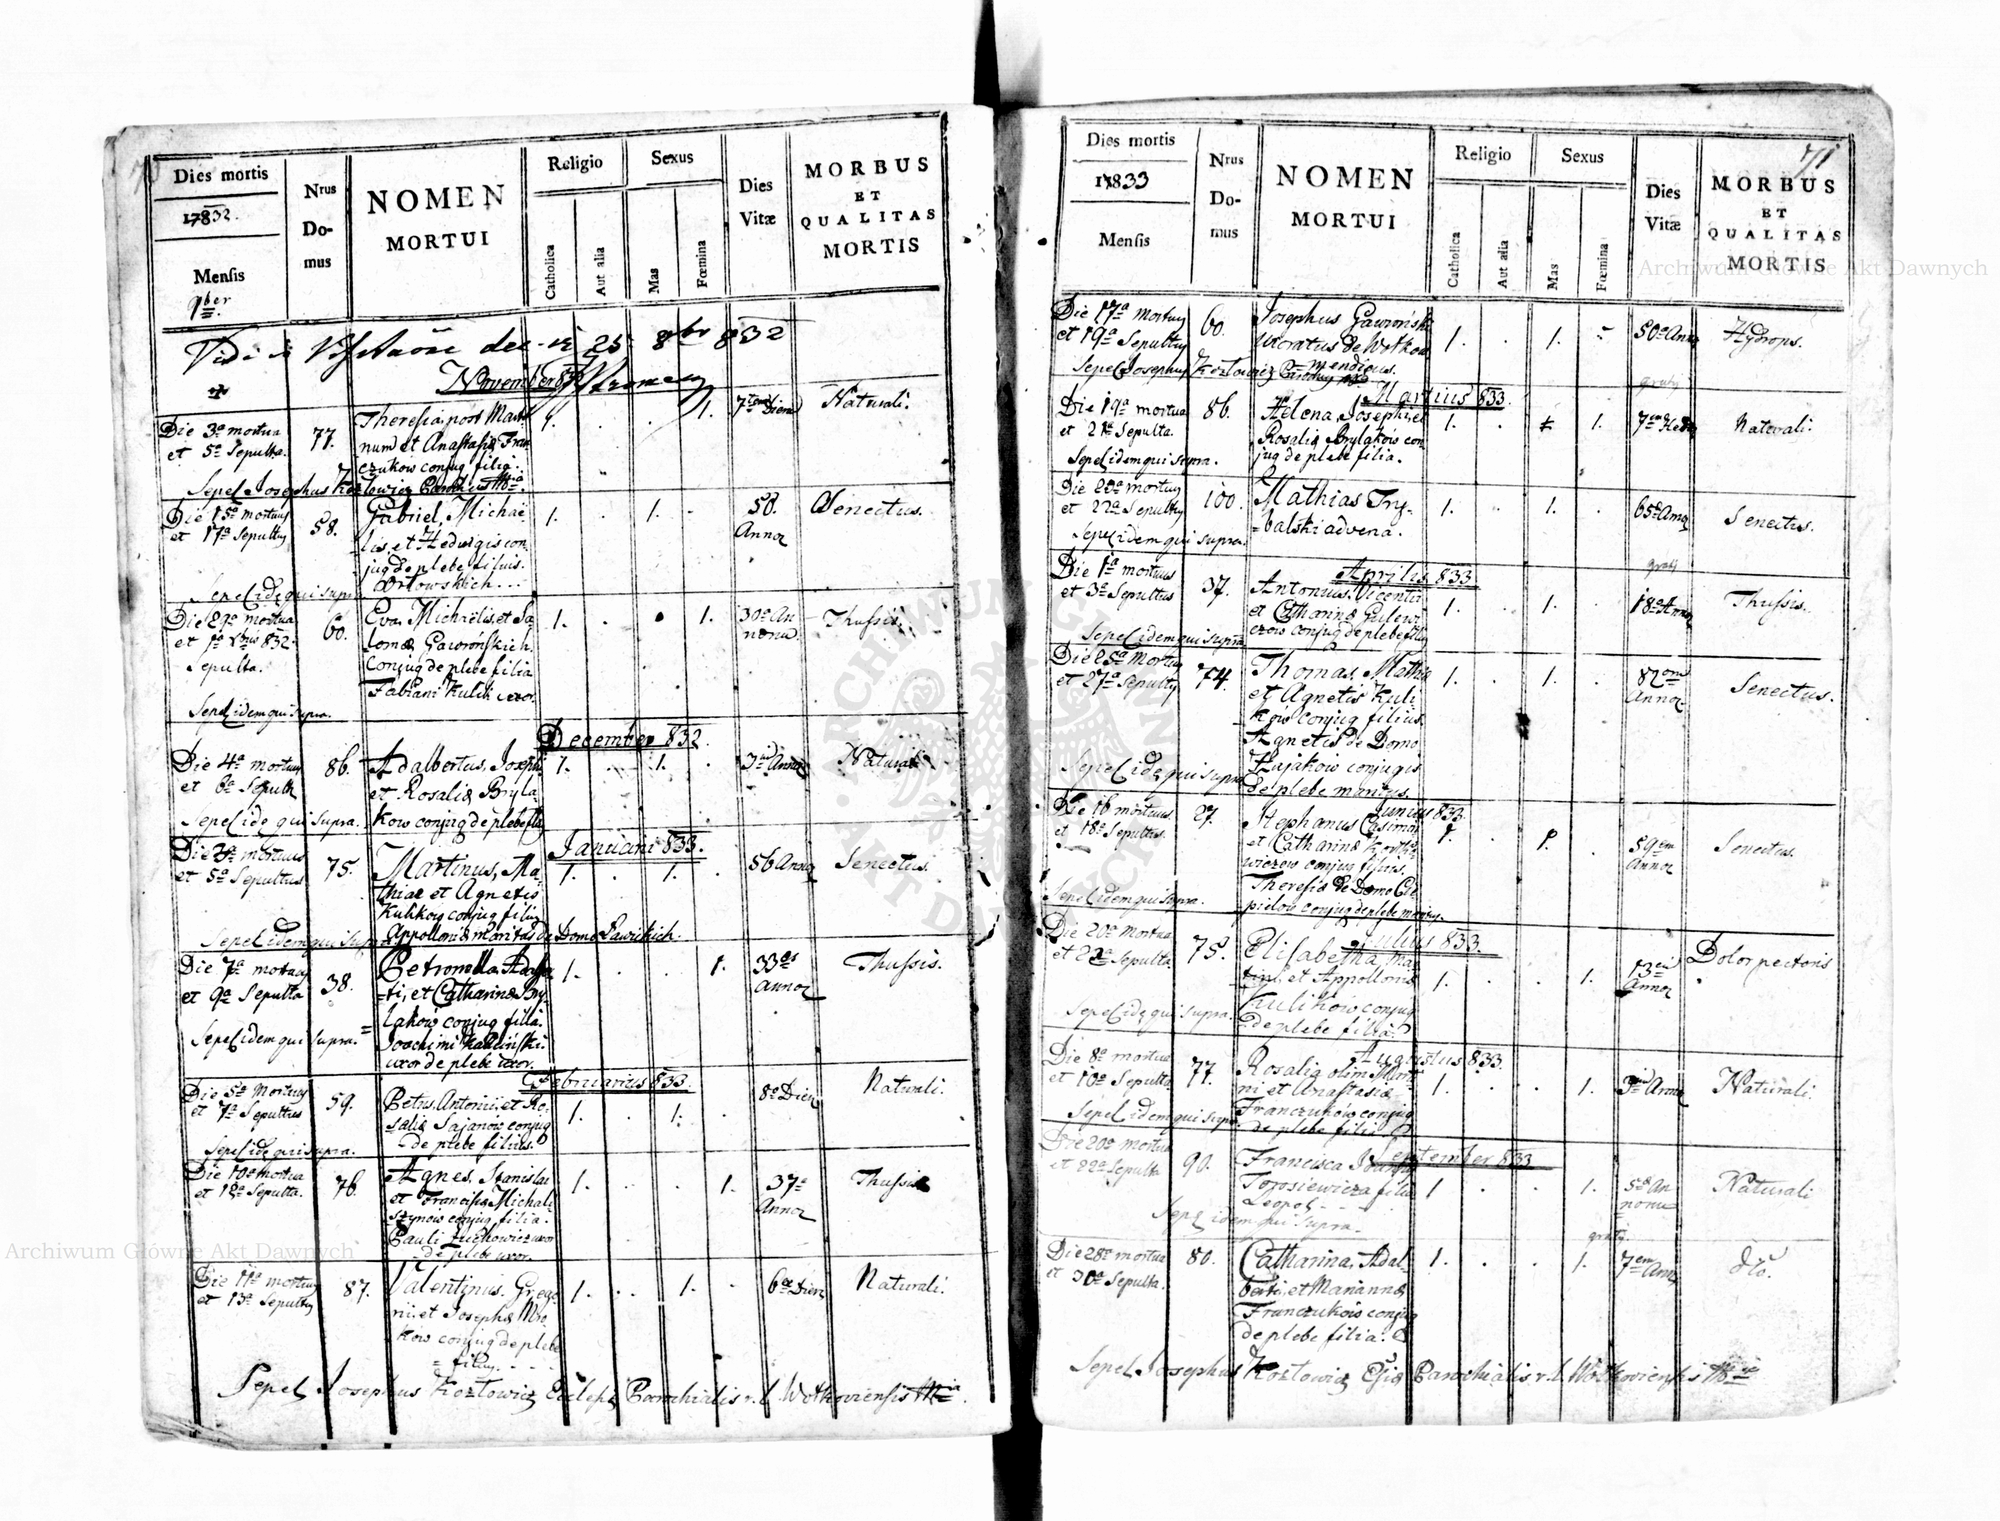 70
Dies mortis
17832.
Mensis
9ber
Nrus Domus
NOMEN MORTUI
Religio
Catholica
Aut alia
Sexus
Mas
Fœmina
Dies Vitæ
MORBUS ET QUALITAS MORTIS
25 8br 832
November 832
Die 3a mortua
et 5a Sepulta.
77.
Theresia, post Marti
num et Anastasia Fran
czukow conjug filia.
1. . . 1.
Naturali.
Sepel Josephus Kozłowicz Parochus
Die 15a mortuus
et 17a Sepultus
58.
Gabriel, Michaë
lis, et Hedwigis con
jug de plebe filius.
Ortowskich...
1. . 1. .
58.
Annor
Senectus.
Sepel idē qui supra
Die 29a mortua
et 1a Xbris 832.
Sepulta.
60.
Eva, Michaëlis, et Sa
lomeæ Gawrońskich.
Conjug de plebe filia
Fabiani Kulik uxor.
1. . . 1.
30a An
norū.
Thussis.
Sepel idem qui supra.
December 832.
Die 4a mortuus
et 6a Sepult
86.
Adalbertus, Josephi
et Rosaliæ Bryla
kow conjug de plebe fil
1. . 1. .
3ū Annor
Naturali.
Sepel idē qui supra.
Januarii 833.
mortuus
et 5a Sepultus
75.
Martinus, Ma
thiæ et Agnetis
Kulikow conjug filiu
Appolloniæ maritus de Domo Ławrikich.
1. . 1. .
56 Annor
Senectus.
Sepel idem qui supra
Die 7a mortua
et 9a Sepulta
38.
Petronella, Adalbe
ti, et Catharinæ Bry
lakow conjug filia.
Joachimi Kaliński
uxor de plebe uxor.
1. . . 1.
33es
Annor
Thussis.
Sepel idem qui supra.
Februarius 833.
Die 5a Mortuus
et 7a Sepultus
59.
Petrus, Antonii, et Ro
saliæ Sajanow conjug
de plebe filius.
1. . 1. .
8a Dier
Naturali.
Sepel idē qui supra.
Die 10a mortua
et 12a Sepulta.
76.
Agnes, Stanislai
et Franciscæ Michali
szynow conjug filia.
Pauli
de plebe uxor.
1. . . 1.
37a
Annor
Thussis
Die 11a mortuus
et 13a Sepultus
87.
Valentinus, Grego
rii, et Josephæ Mro
kow conjug de plebe
filius. - - -
1. . 1. .
6æ Dier
Naturali.
Sepel Josephus Kozłowicz Ecclesiæ Parochialis r. l. Wołkoviensis
71
Dies mortis
17833
Mensis
Nrus Domus
NOMEN MORTUI
Religio
Catholica
Aut alia
Sexus
Mas
Fœmina
Dies Vitæ
MORBUS ET QUALITAS MORTIS
Die 17a Mortuus
et 19a Sepultus
60.
Josephus Gawroński
de Wołkow
mendicus.
1. . 1. -
50a Anno
Hydrops.
Sepel Josephus Kozłowicz Parochus
Martius 833.
gratis
Die 19a mortua
et 21a Sepulta.
86.
Helena, Josephi, et
Rosaliæ Brylakow con
jug de plebe filia.
1. . 1.
Naturali.
Sepel idem qui supra.
Die 20a mortuus
et 22a Sepultus
100.
Mathias Try-
balski advena.
1. . 1. .
65a Annor
Senectus.
Sepel idem qui supra.
Aprilis 833.
gratis
Die 1a mortuus
et 3a Sepultus
37.
Antonius, Vicentii
et Catharinæ Gulewi
czow conjug de plebe filiu
1. . 1. .
18a Annor
Thussis.
Sepel idem qui supra
Die 25a Mortuus
et 27a Sepultus
74.
Thomas, Mathiæ
et Agnetis Kuli
kow conjug filius.
Agnetis de Domo
Hajakow conjugis
de plebe maritus.
1. . 1. .
82om
Annor
Senectus.
Sepel idē qui supra
Junius 833.
Die 16 mortuus
et 18a Sepultus.
27.
Stephanus Casimiri
et Catharinæ
conjug filius
Theresiæ de Domo
conjug de plebe maritus.
1. . 1. .
59em
Annor
Senectus.
Sepel idem qui supra.
Julius 833.
Die 20a Mortua
et 22a Sepulta.
75.
Elisabetha, Ma
tini, et Appolloniæ
Kulikow conjug
de plebe filia.
1. . . 1.
13ci
Annor
Dolor pectoris
Sepel idē qui supra.
Augustus 833.
Die 8a mortua
et 10a Sepulta
77.
Rosalia olim Marti
ni et Anastasiæ
Franczukow conjug
de plebe filia.
1. . . 1.
3ū Annor
Naturali.
Sepel idem qui supra
September 833
Die 20a mortua
et 22a Sepulta
90.
Francisca
Torosiewicza filia
Leopol - - -
1 . . 1.
5a An
norum
Naturali
Sepel idem qui supra.
gratis
Die 28a mortua
et 30a Sepulta.
80.
Catharina, Adal-
berti, et Mariannæ
Franczukow conjug
de plebe filia.
1. . . 1.
7em Ann
dto.
Sepel Josephus Kozłowicz Parochialis r. l. Wołkoviensis
Archiwum Główne Akt Dawnych
Archiwum Główne Akt Dawnych
ARCHIWUM GŁÓWNE AKT DAWNYCH